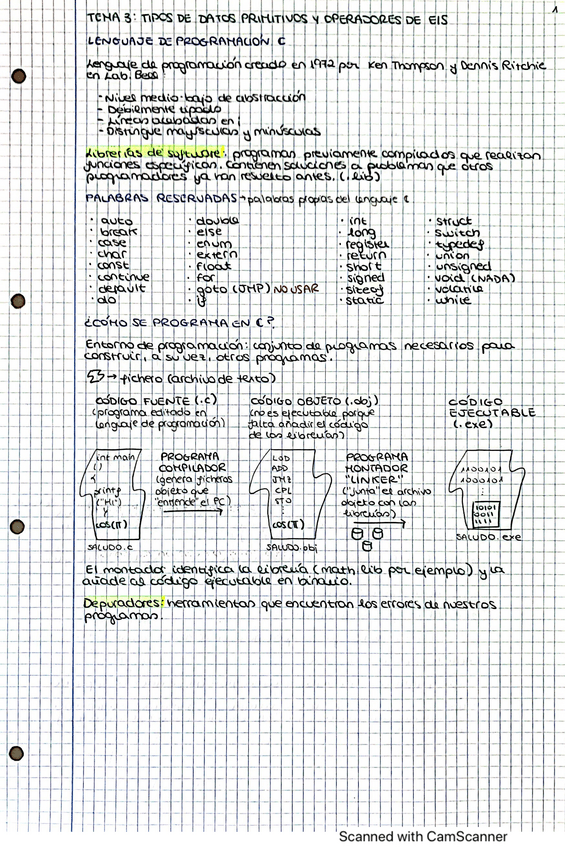 1
TEMA 3: TIPOS DE DATOS PRIMITIVOS Y OPERADORES DE E/S
LENGUAJE DE PROGRAMACIÓN C
Lenguaje de programación creado en 1972 por Ken Thompson y Dennis Ritchie
en Lab. Bell
- Nivel medio-bajo de abstracción
- Débilmente tipado
- Líneas acabadas en ;
- Distingue mayúsculas y minúsculas
Librerías de software: programas previamente compilados que realizan
funciones específicas. Contienen soluciones a problemas que otros
programadores ya han resuelto antes. (.lib)
PALABRAS RESERVADAS → palabras propias del lenguaje C
· auto · double · int · struct
· break · else · long · switch
· case · enum · register · typedef
· char · extern · return · union
· const · float · short · unsigned
· continue · for · signed · void (NADA)
· default · goto (JMP) NO USAR · sizeof · volatile
· do · if · static · while
¿CÓMO SE PROGRAMA EN C?
Entorno de programación: conjunto de programas necesarios para
construir, a su vez, otros programas.
→ fichero (archivo de texto)
CÓDIGO FUENTE (.c)
(programa editado en
lenguaje de programación)
CÓDIGO OBJETO (.obj)
(no es ejecutable porque
falta añadir el código
de las librerías)
CÓDIGO
EJECUTABLE
(.exe)
int main
()
{
printf
("Hi")
}
cos(π)
SALUDO.c
PROGRAMA
COMPILADOR
(genera ficheros
objeto que
"entiende" el PC)
LOD
ADD
JMZ
CPL
STO
:
cos(π)
SALUDO.obj
PROGRAMA
MONTADOR
"LINKER"
("junta" el archivo
objeto con las
librerías)
1100101
1000101
:
10101
0011
1111
SALUDO.exe
El montador identifica la librería (math lib por ejemplo) y la
añade al código ejecutable en binario.
Depuradores: herramientas que encuentran los errores de nuestros
programas.
Scanned with CamScanner